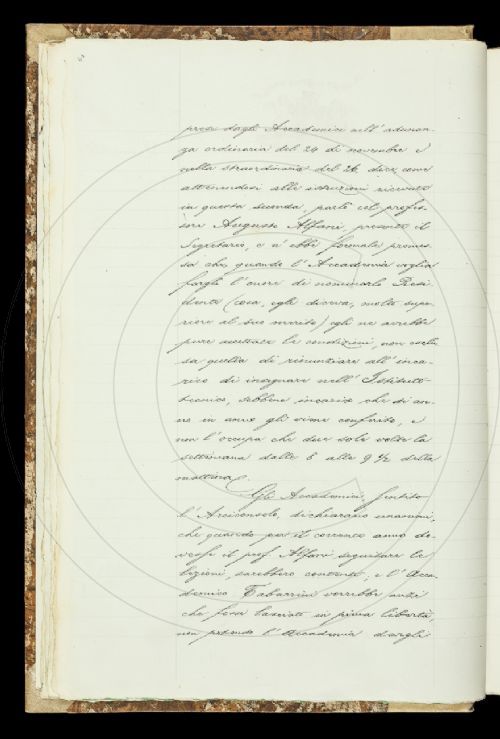 presa dagli Accademici nell'adunan-
za ordinaria del 24 di novembre e
nella straordinaria del 26, dice come
attenendosi alle istruzioni ricevute
in questa seconda, parlò col profes-
sore Augusto Alfani, presente il
Segretario, e n'ebbe formale promes-
sa che quando l'Accademia voglia
fargli l'onore di nominarlo Resi-
dente (cosa, egli diceva, molto supe-
riore al suo merito) egli ne avrebbe
pure accettate le condizioni, non esclu-
sa quella di rinunziare all'inca-
rico di insegnare nell'Istituto
tecnico, sebbene incarico che di an-
no in anno gli viene conferito, e
non l'occupa che due sole volte la
settimana dalle 8 alle 9 1/2 della
mattina.
Gli Accademici, sentito
l'Arciconsolo, dichiarano unanimi,
che quando per il corrente anno do-
vesse il prof. Alfani seguitare le
lezioni, sarebbero contenti, e l'Acca-
demico Tabarrini vorrebbe anzi
che fosse lasciato in piena libertà,
non potendo l'Accademia dargli